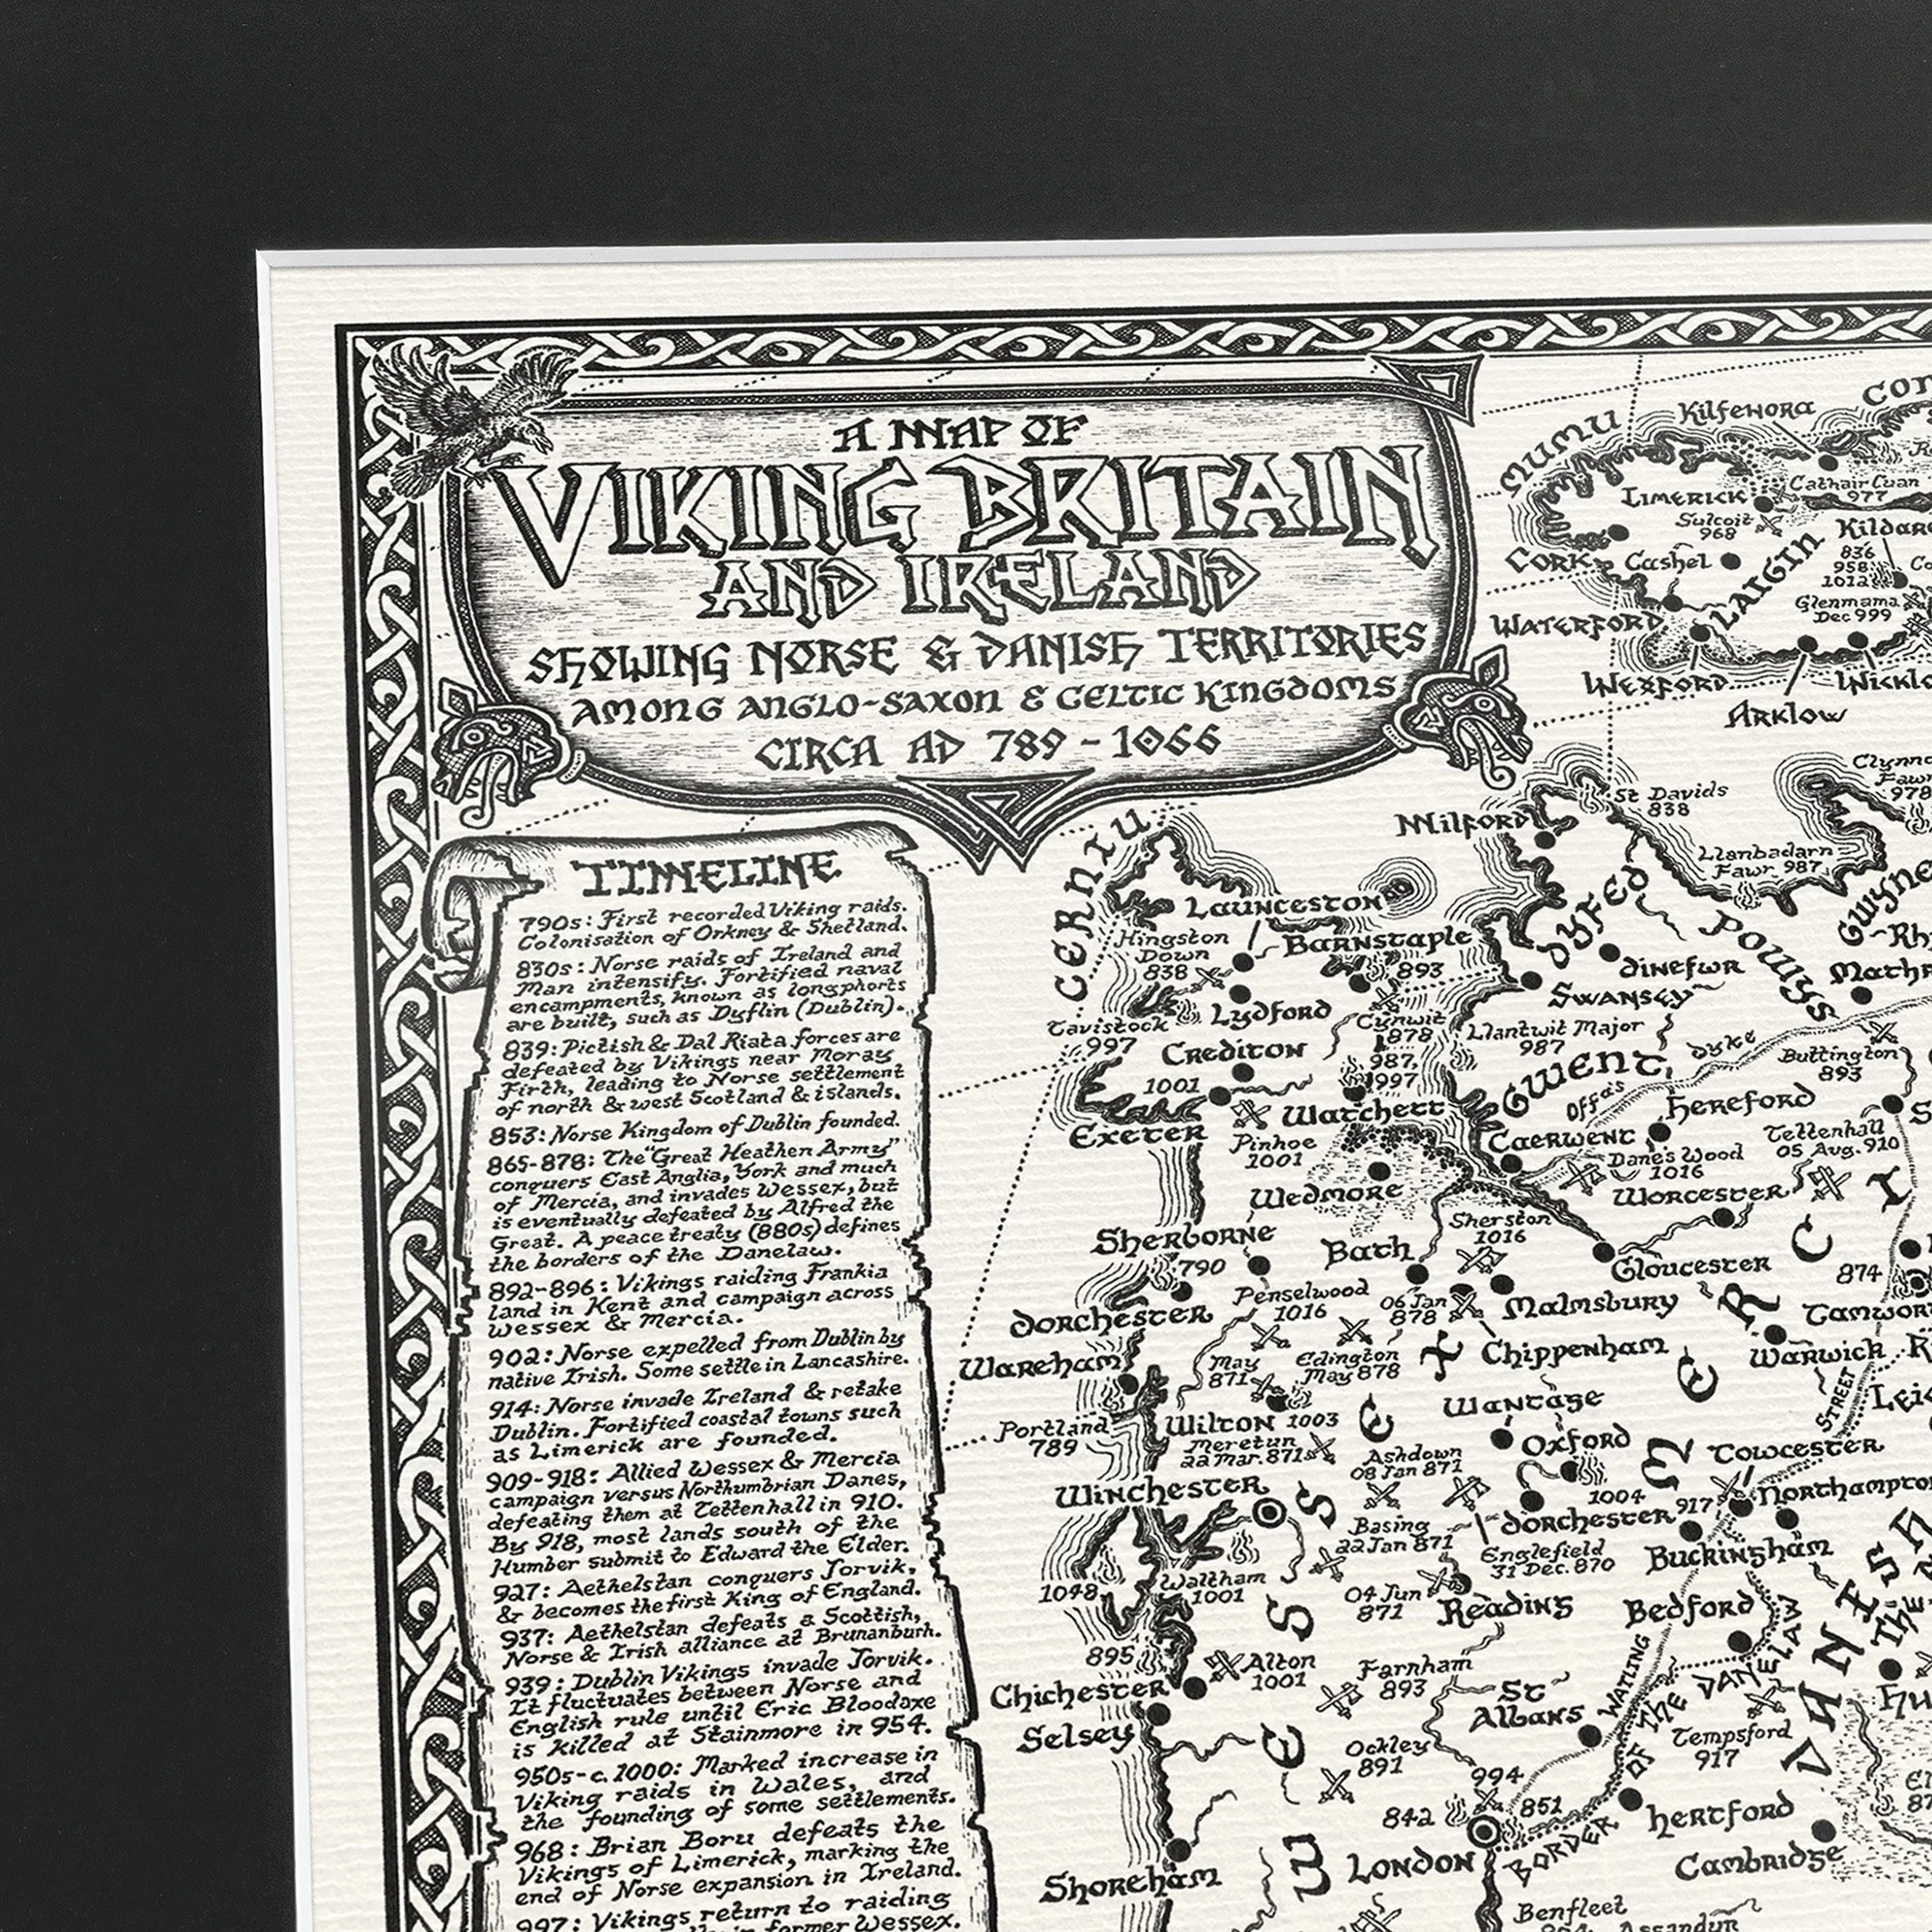 A MAP OF
VIKING BRITAIN
AND IRELAND
SHOWING NORSE & DANISH TERRITORIES
AMONG ANGLO-SAXON & CELTIC KINGDOMS
CIRCA AD 789 - 1066
TIMELINE
790s: First recorded Viking raids.
Colonisation of Orkney & Shetland.
830s: Norse raids of Ireland and
Man intensify. Fortified naval
encampments, known as longphorts
are built, such as Dyflin (Dublin).
839: Pictish & Dal Riata forces are
defeated by Vikings near Moray
Firth, leading to Norse settlement
of north & west Scotland & islands.
853: Norse Kingdom of Dublin founded.
865-878: The "Great Heathen Army"
conquers East Anglia, York and much
of Mercia, and invades Wessex, but
is eventually defeated by Alfred the
Great. A peace treaty (880s) defines
the borders of the Danelaw.
892-896: Vikings raiding Frankia
land in Kent and campaign across
Wessex & Mercia.
902: Norse expelled from Dublin by
native Irish. Some settle in Lancashire.
914: Norse invade Ireland & retake
Dublin. Fortified coastal towns such
as Limerick are founded.
909-918: Allied Wessex & Mercia
campaign versus Northumbrian Danes,
defeating them at Tettenhall in 910.
By 918, most lands south of the
Humber submit to Edward the Elder.
927: Aethelstan conquers Jorvik,
& becomes the first King of England.
937: Aethelstan defeats a Scottish,
Norse & Irish alliance at Brunanburh.
939: Dublin Vikings invade Jorvik.
It fluctuates between Norse and
English rule until Eric Bloodaxe
is killed at Stainmore in 954.
950s-c.1000: Marked increase in
Viking raids in Wales, and
the founding of some settlements.
968: Brian Boru defeats the
Vikings of Limerick, marking the
end of Norse expansion in Ireland.
997: Vikings return to raiding
in former Wessex.
MUMU
Kilfenora
CON
LIMERICK
Cathair Cuan
977
Sulcoit
968
Kildar
836
958
1012
CORK
Cashel
LAIGIN
Glenmama
Dec 999
WATERFORD
WEXFORD
WICKLO
ARKLOW
St Davids
838
Clynno
Fawr
978
MILFORD
Llanbadarn
Fawr 987
CERNIU
LAUNCESTON
DYFED
POWYS
GWYNE
Rh
Hingston
Down
838
BARNSTAPLE
893
DINEFWR
Mathr
SWANSEY
LYDFORD
Tavistock
997
Cynwit
878
Llantwit Major
987
CREDITON
987,
997
GWENT
Offa's
Dyke
Buttington
893
1001
WATCHETT
HEREFORD
EXETER
Pinhoe
1001
CAERWENT
Tettenhall
05 Aug. 910
Dane's Wood
1016
WEDMORE
WORCESTER
Sherston
1016
SHERBORNE
790
BATH
GLOUCESTER
874
Penselwood
1016
06 Jan
878
MALMSBURY
TAMWOR
DORCHESTER
WAREHAM
May
871
Edington
May 878
CHIPPENHAM
WARWICK
MERCI
STREET
LEI
WANTAGE
Portland
789
WILTON 1003
Meretun
22 Mar. 871
Ashdown
08 Jan 871
OXFORD
TOWCESTER
WINCHESTER
1004
NORTHAMPTO
917
DORCHESTER
Basing
22 Jan 871
Englefield
31 Dec. 870
BUCKINGHAM
1048
Waltham
1001
04 Jun
871
READING
BEDFORD
WESSEX
895
Alton
1001
Farnham
893
WATLING
DANISH
CHICHESTER
ST
ALBANS
BORDER OF THE DANELAW
SELSEY
Tempsford
917
Ockley
891
994
842
851
HERTFORD
LONDON
CAMBRIDGE
SHOREHAM
Benfleet
Assandun